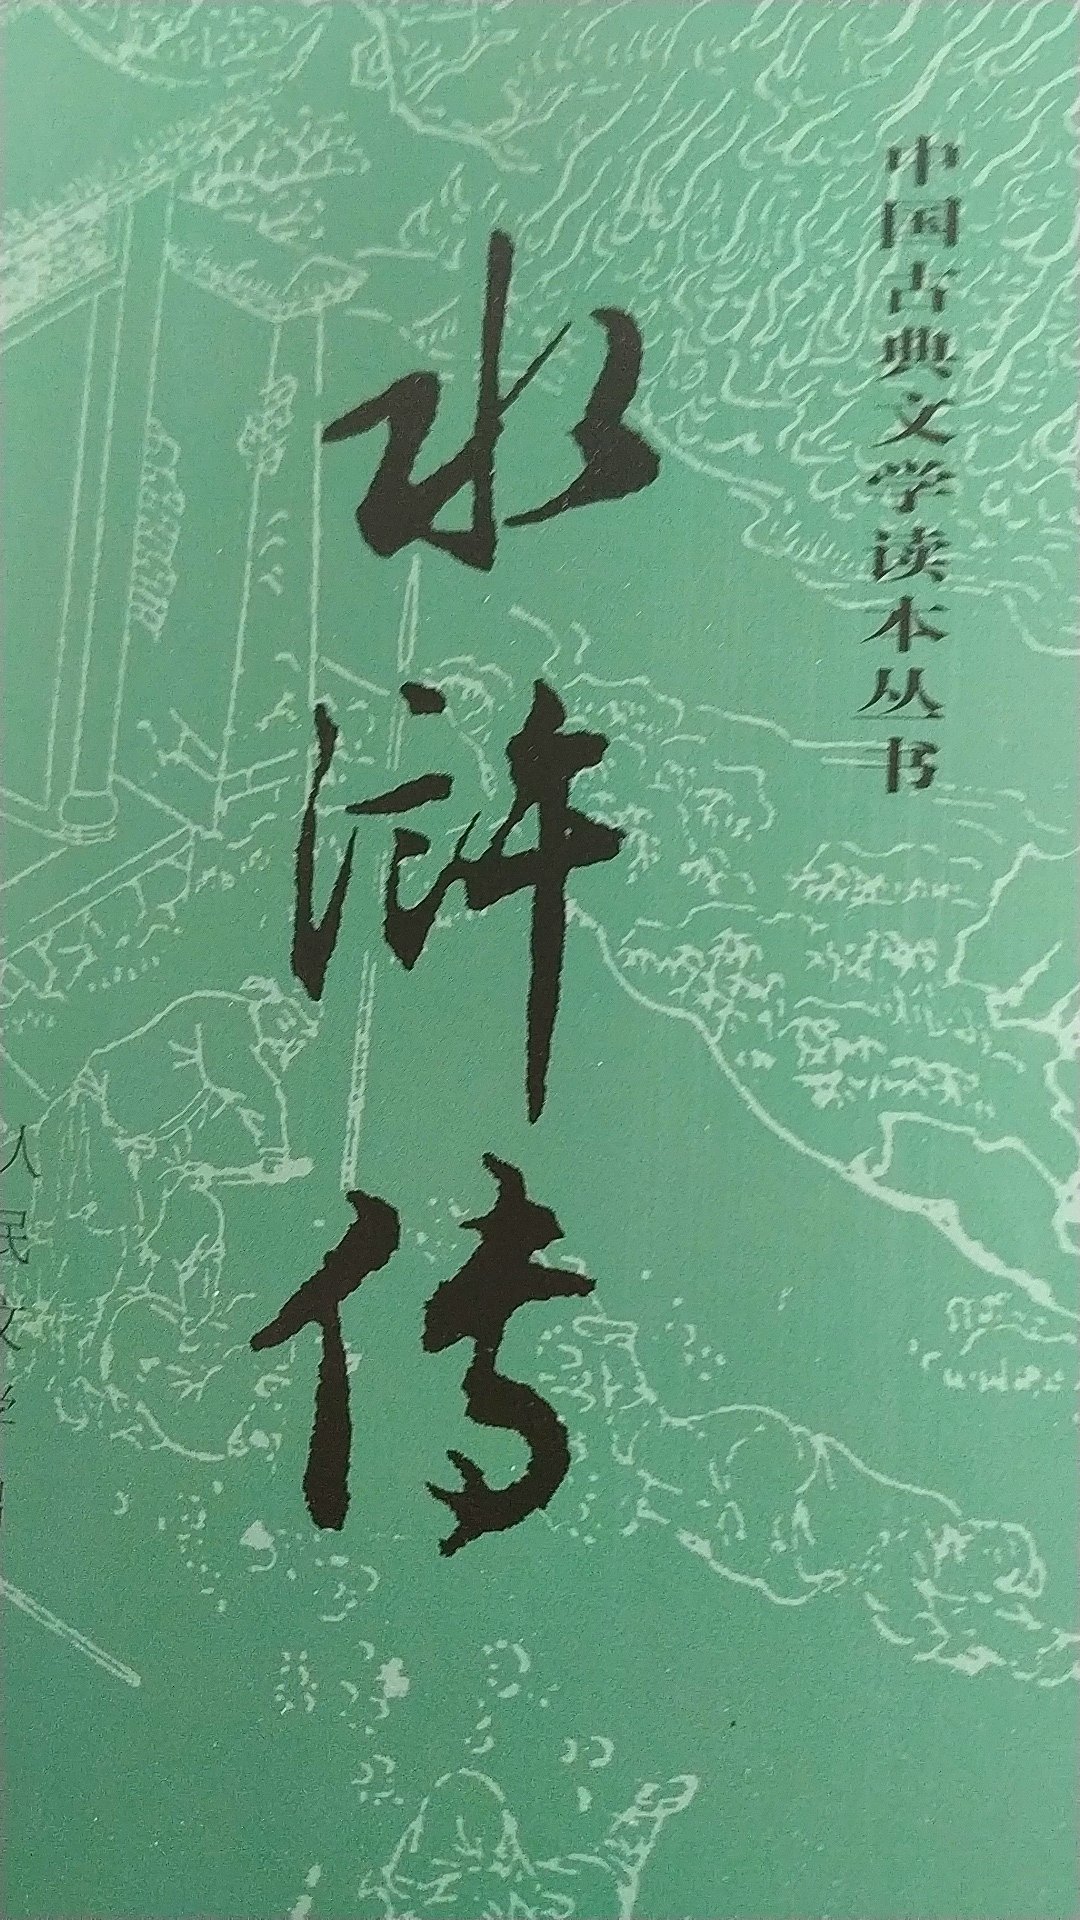 中国古典文学读本丛书
水浒传
人民文学